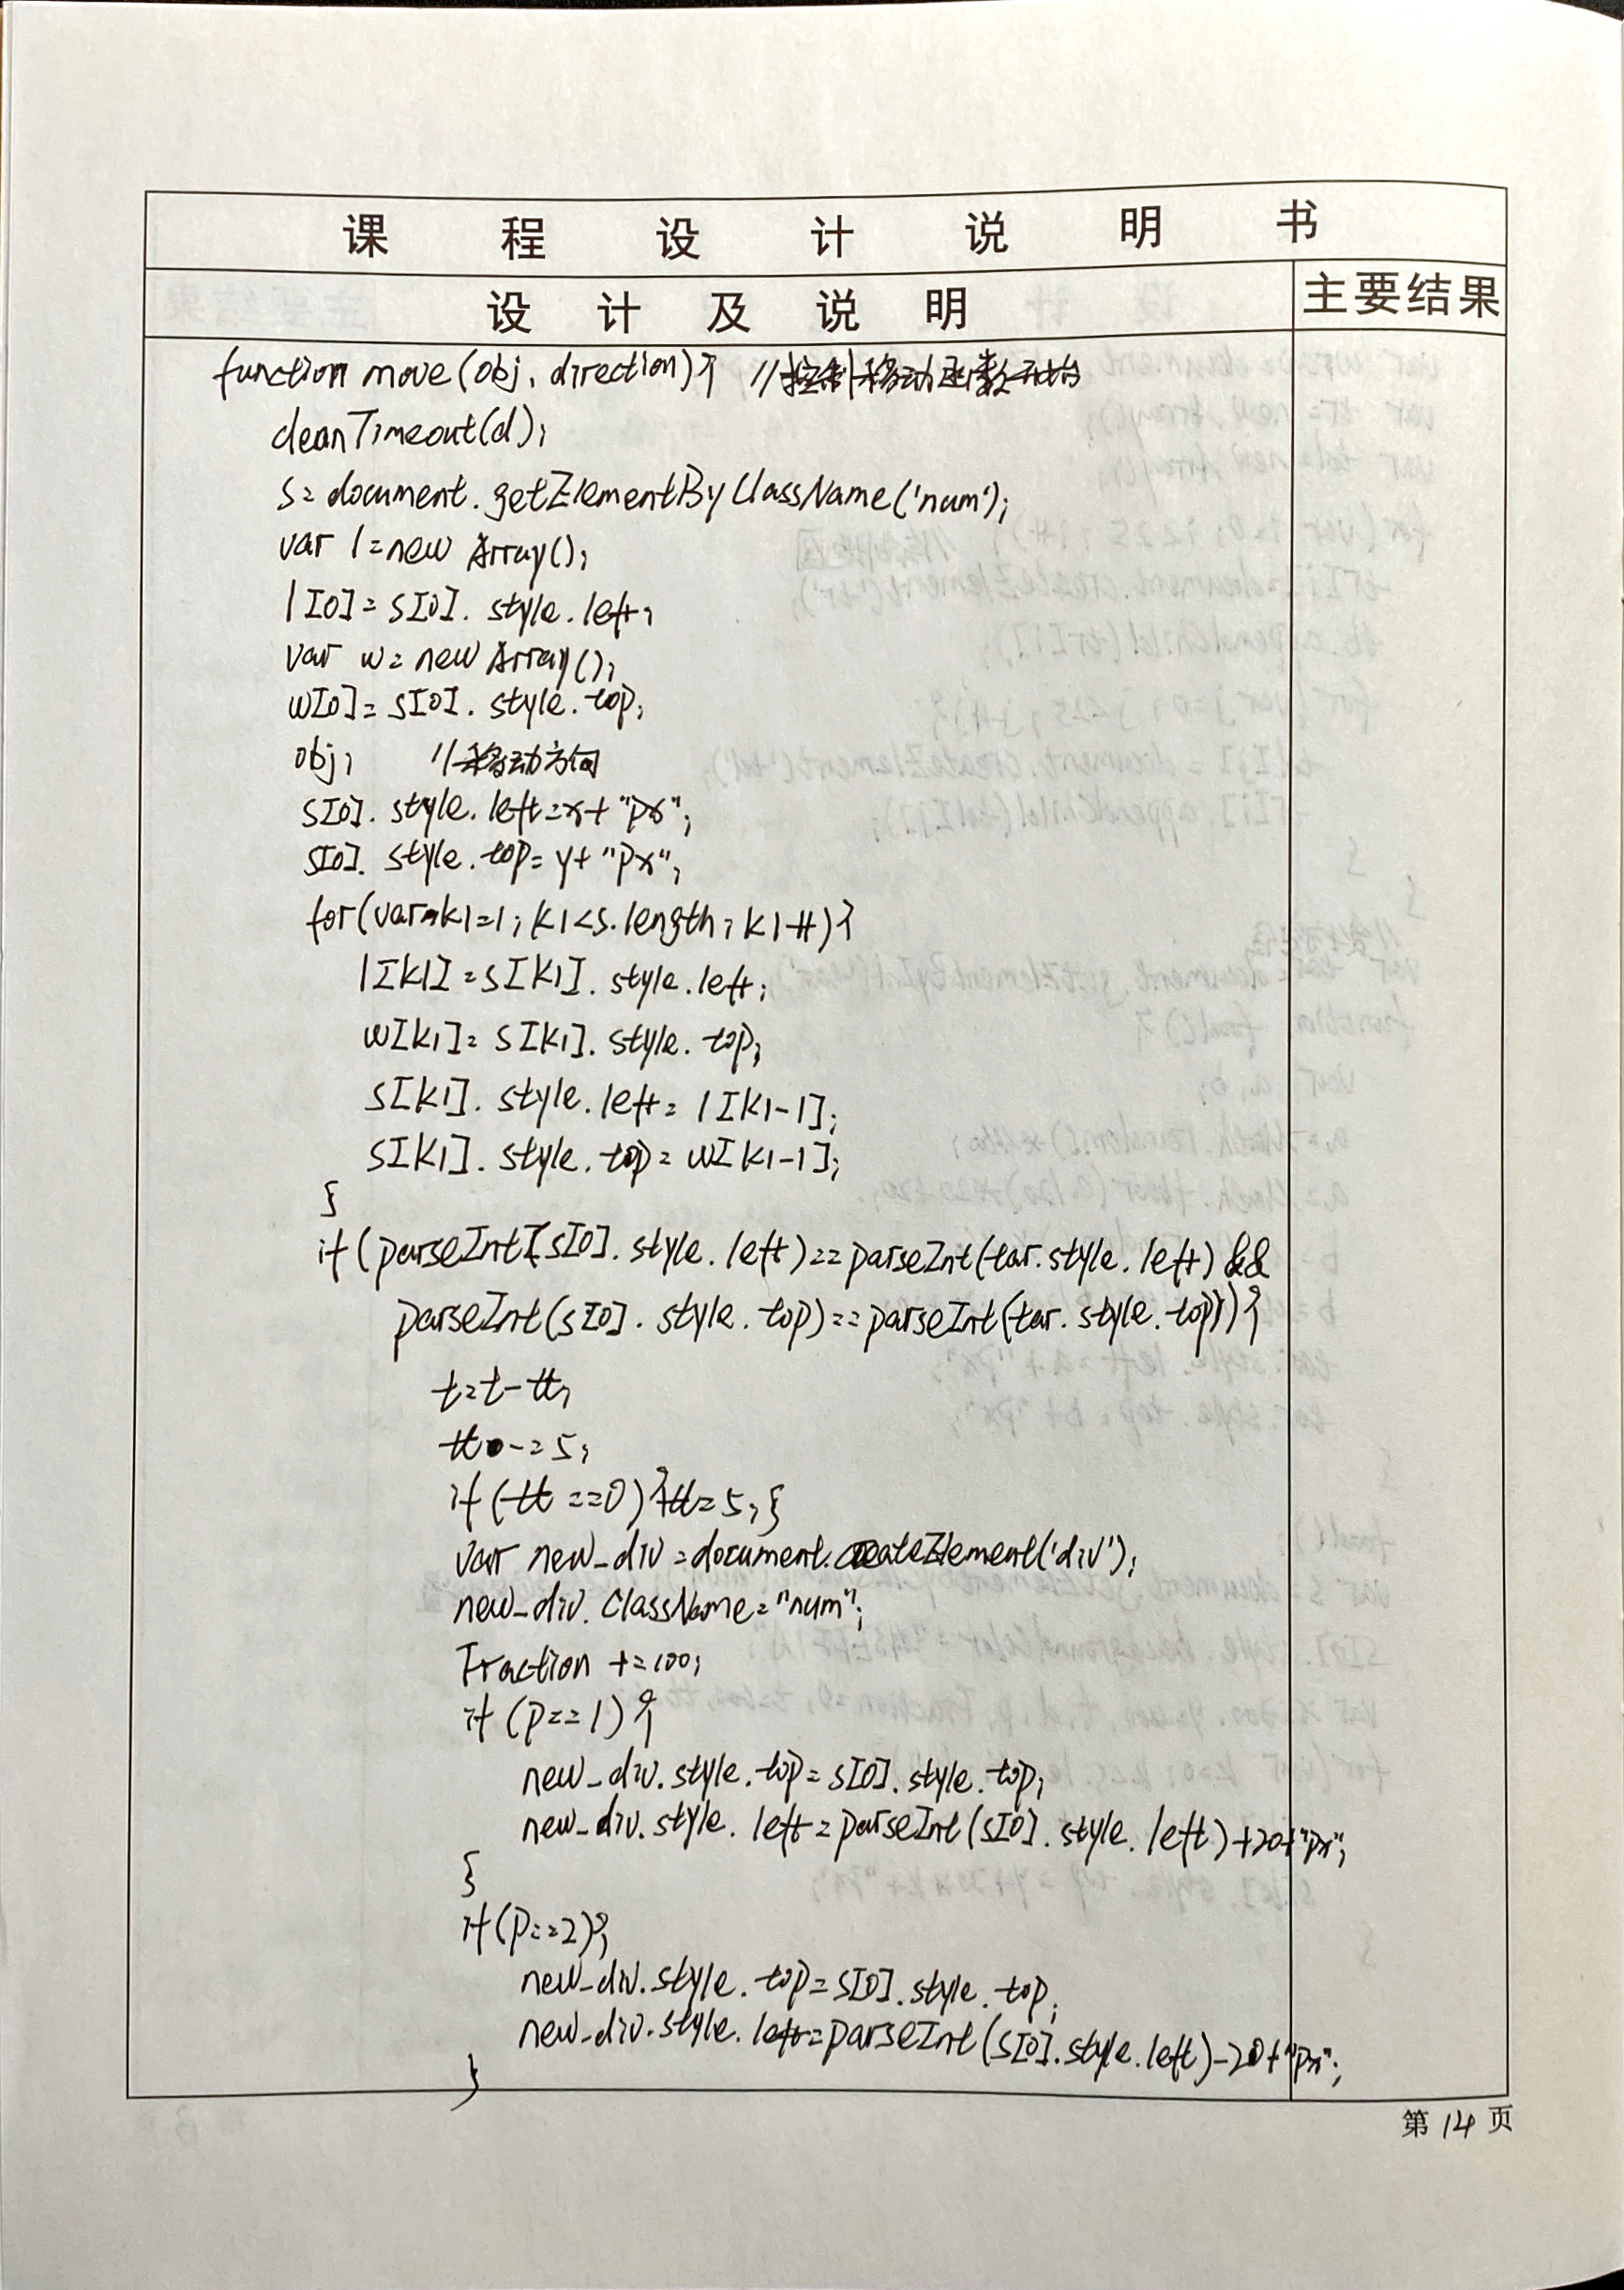 课程设计说明书
设计及说明
主要结果
function move(obj, direction){ //控制移动函数开始
cleanTimeout(d);
s=document.getElementByClassName('num');
var l=new Array();
l[0]=s[0].style.left;
var w=new Array();
w[0]=s[0].style.top;
obj; //移动方向
s[0].style.left=x+"px";
s[0].style.top=y+"px";
for(var k1=1; k1<s.length; k1++){
l[k1]=s[k1].style.left;
w[k1]=s[k1].style.top;
s[k1].style.left=l[k1-1];
s[k1].style.top=w[k1-1];
}
if(parseInt(s[0].style.left)==parseInt(tar.style.left)&&
parseInt(s[0].style.top)==parseInt(tar.style.top)){
t=t-tt;
tt-=5;
if(tt==0){tt=5;}
var new_div=document.createElement('div');
new_div.ClassName="num";
Fraction+=100;
if(p==1){
new_div.style.top=s[0].style.top;
new_div.style.left=parseInt(s[0].style.left)+20+"px";
}
if(p==2){
new_div.style.top=s[0].style.top;
new_div.style.left=parseInt(s[0].style.left)-20+"px";
}
第14页